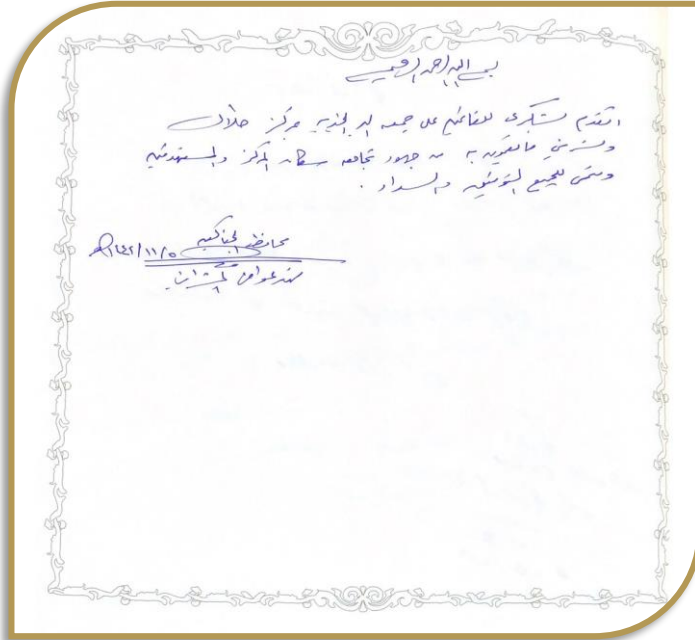 بسم الله الرحمن الرحيم
اتقدم بشكري للقائمين على جمعية البر الخيرية بمركز
وتثمين ما يقومون به من جهود تجاه سكان المركز والمستفدين
ونتمنى للجميع التوفيق والسداد .
محافظ الحناكية
١١/٥/